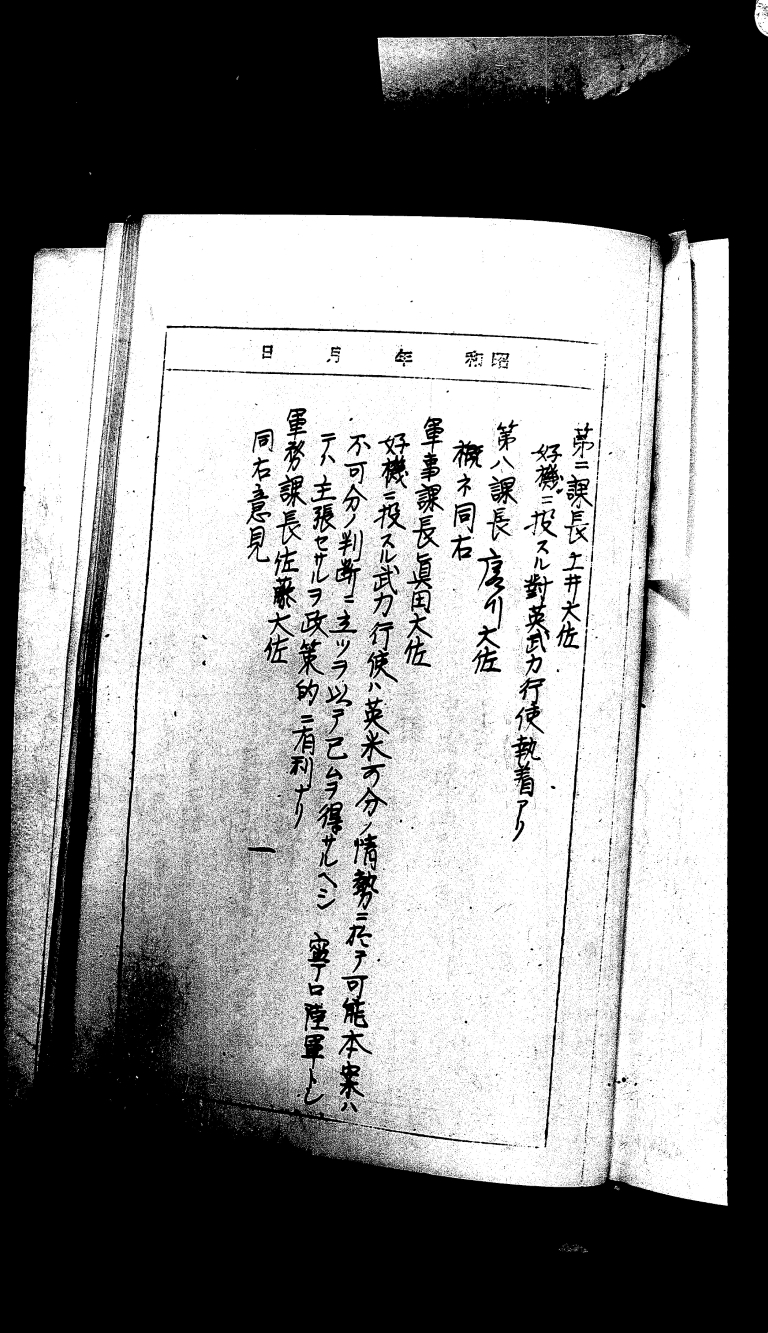 昭和　年　月　日
第二課長 土井大佐
好機ニ投スル對英武力行使執着アリ
第八課長 唐川大佐
概ネ同右
軍事課長眞田大佐
好機ニ投スル武力行使ハ英米可分ノ情勢ニ於テ可能本案ハ
不可分ノ判断ニ立ツヲ以テ已ムヲ得サルヘシ 寧ロ陸軍トシ
テハ主張セサルヲ政策的ニ有利ナリ
軍務課長佐藤大佐
同右意見